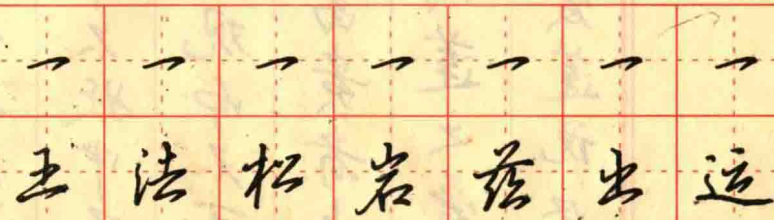 一 一 一 一 一 一 一
王 法 松 岩 出 运